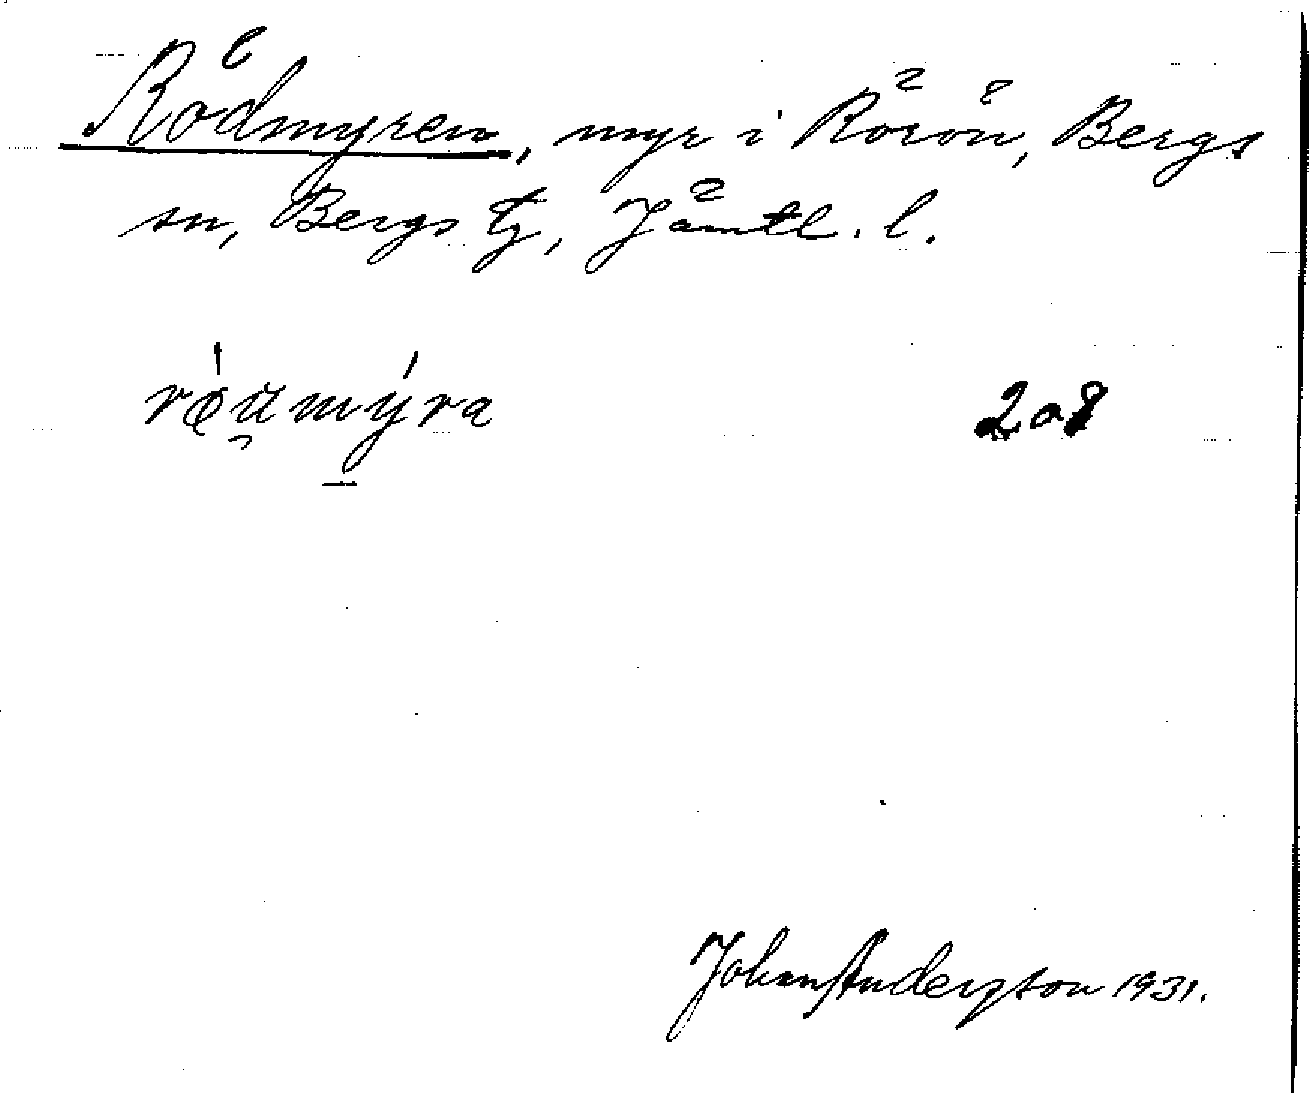 Rödmyren, myr i Rörön, Bergs
sn, Bergs tg, Jämtl. l.
208
Johan Andersson 1931.